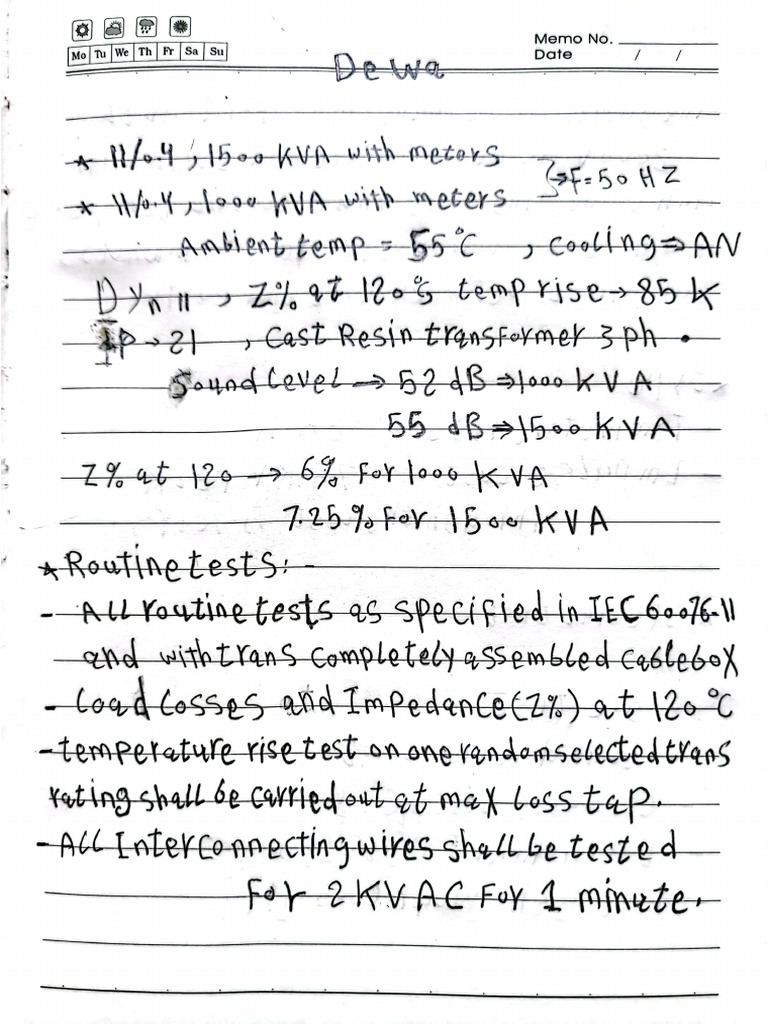 Mo Tu We Th Fr Sa Su
Memo No.
Date / /
Dewa
* 11/0.4, 1500 KVA with meters
* 11/0.4, 1000 KVA with meters
→F=50 HZ
Ambient temp = 55°C , cooling⇒AN
Dyn 11 , Z% at 120°c temp rise → 85 K
IP → 21 , Cast Resin transformer 3 ph .
Sound Level → 52 dB ⇒1000 KVA
55 dB ⇒1500 KVA
Z% at 120 → 6% For 1000 KVA
7.25% For 1500 KVA
* Routine tests: -
- All routine tests as specified in IEC 60076-11
and with trans completely assembled cable box
- Load Losses and Impedance (Z%) at 120°C
- temperature rise test on one random selected trans
rating shall be carried out at max loss tap.
- All Interconnecting wires shall be tested
For 2 KV AC For 1 minute.